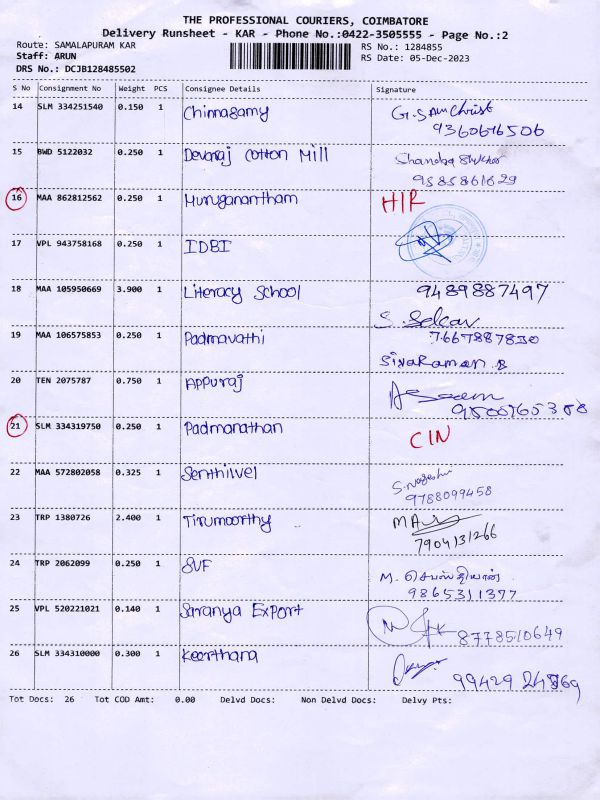 THE PROFESSIONAL COURIERS, COIMBATORE
Delivery Runsheet - KAR - Phone No.:0422-3505555 - Page No.:2
Route: SAMALAPURAM KAR RS No.: 1284855
Staff: ARUN RS Date: 05-Dec-2023
DRS No.: DCJB128485502
S No Consignment No Weight PCS Consignee Details Signature
14 SLM 334251540 0.150 1 Chinnasamy G. Sam Christ
9360616506
15 BWD 5122032 0.250 1 Devaraj Cotton Mill
9585861629
16 MAA 862812562 0.250 1 Muruganantham HIR
17 VPL 943758168 0.250 1 IDBI
18 MAA 105950669 3.900 1 Literacy School 9489887497
S. Selcav
19 MAA 106575853 0.250 1 Padmavathi 7667887830
Sivaraman B
20 TEN 2075787 0.750 1 Appuraj
9500765358
21 SLM 334319750 0.250 1 Padmanathan CIN
22 MAA 572802058 0.325 1 Senthilvel
9788099458
23 TRP 1380726 2.400 1 Tirumoorthy
7904131266
24 TRP 2062099 0.250 1 SVF M. செபஸ்தியான்
9865311377
25 VPL 520221021 0.140 1 Saranya Export 8778510649
26 SLM 334310000 0.300 1 Keerthana
Tot Docs: 26 Tot COD Amt: 0.00 Delvd Docs: Non Delvd Docs: Delvy Pts: